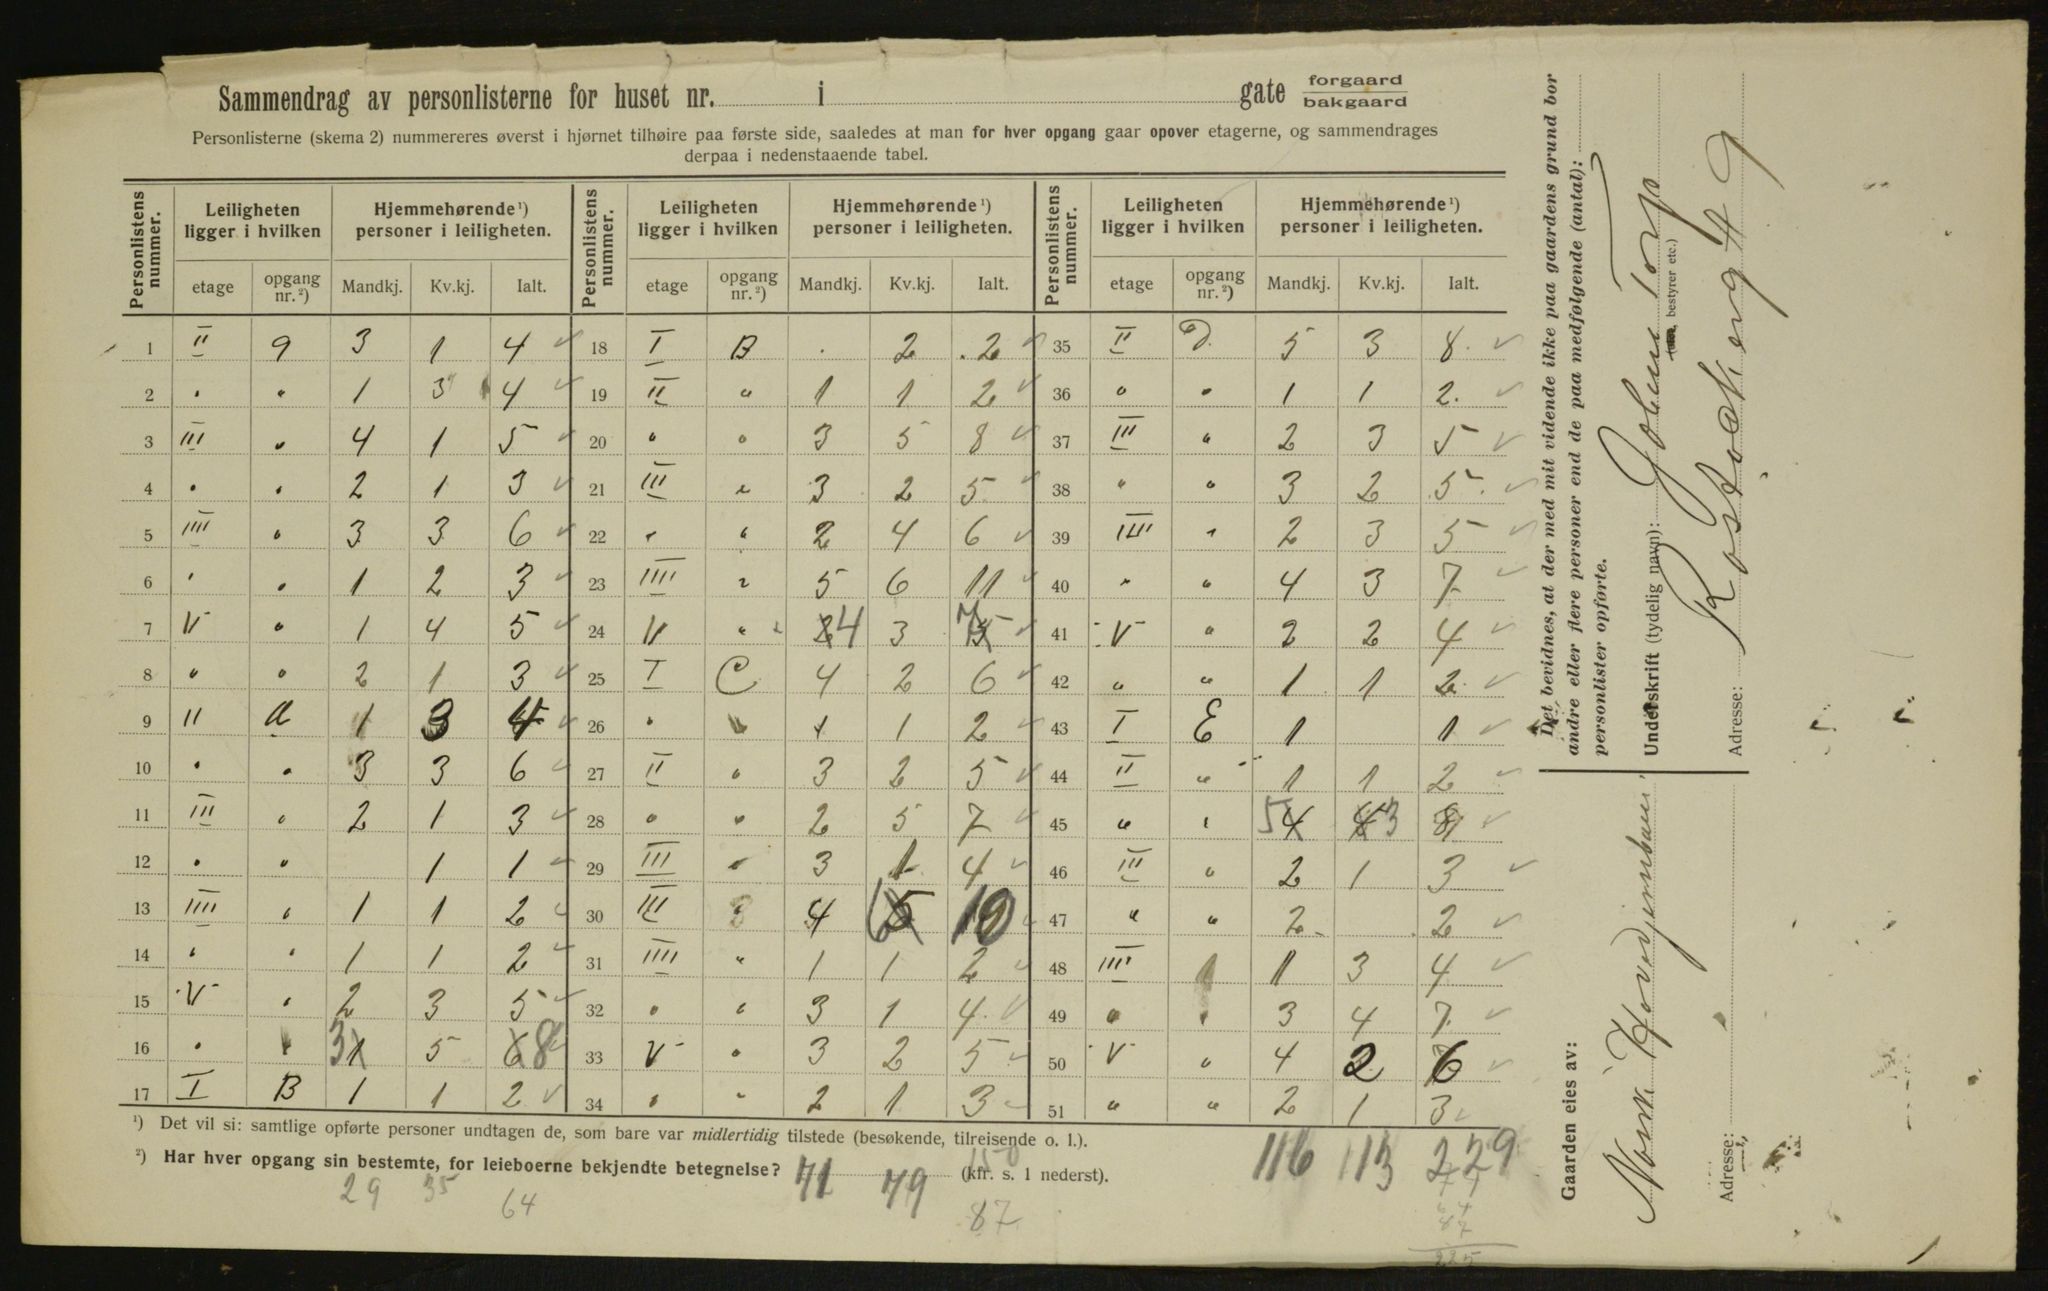 Sammendrag av personlisterne for huset nr. i gate forgaard bakgaard
Personlisterne (skema 2) nummereres øverst i hjørnet tilhøire paa første side, saaledes at man for hver opgang gaar opover etagerne, og sammendrages
derpaa i nedenstaaende tabel.
Personlistens nummer. Leiligheten ligger i hvilken Hjemmehørende ¹) personer i leiligheten. Personlistens nummer. Leiligheten ligger i hvilken Hjemmehørende ¹) personer i leiligheten. Personlistens nummer. Leiligheten ligger i hvilken Hjemmehørende ¹) personer i leiligheten.
etage opgang nr. ²) Mandkj. Kv.kj. Ialt. etage opgang nr. ²) Mandkj. Kv.kj. Ialt. etage opgang nr. ²) Mandkj. Kv.kj. Ialt.
1 II 3 1 4 18 I B . 2 2 35 II D 5 3 8
2 " " 1 3 4 19 II " 1 1 2 36 " " 1 1 2
3 III " 4 1 5 20 " " 3 5 8 37 III " 2 3 5
4 " " 2 1 3 21 III " 3 2 5 38 " " 3 2 5
5 IIII " 3 3 6 22 " " 2 4 6 39 IIII " 2 3 5
6 " " 1 2 3 23 IIII " 5 6 11 40 " " 4 3 7
7 V " 1 4 5 24 V " 4 3 7 41 V " 2 2 4
8 " " 2 1 3 25 I C 4 2 6 42 " " 1 1 2
9 II a 1 3 4 26 " " 1 1 2 43 I E 1 1
10 " " 3 3 6 27 II " 3 2 5 44 II " 1 1 2
11 III " 2 1 3 28 " " 2 5 7 45 " " 5 4 4 3 8
12 " " 1 1 29 III " 3 1 4 46 III " 2 1 3
13 IIII " 1 1 2 30 III 4 6 5 10 47 " " 2 2
14 " " 1 1 2 31 IIII " 1 1 2 48 IIII 1 3 4
15 V " 2 3 5 32 " " 3 1 4 49 " " 3 4 7
16 " " 3 1 5 6 8 33 V " 3 2 5 50 V " 4 2 6
17 I B 1 1 2 34 " " 2 1 3 51 " " 2 1 3
¹) Det vil si: samtlige opførte personer undtagen de, som bare var midlertidig tilstede (besøkende, tilreisende o. l.).
²) Har hver opgang sin bestemte, for leieboerne bekjendte betegnelse? (kfr. s. 1 nederst).
29 35 64 71 79 150 87 116 113 229
77
64
87
225
Det bevidnes, at der med mit vidende ikke paa gaardens grund bor
andre eller flere personer end de paa medfølgende (antal):
personlister opførte.
Underskrift (tydelig navn): Johan Torp
bestyrer etc.)
Adresse: Rostocksng 49
Gaarden eies av: Norsk Hovedjernbane
Adresse: